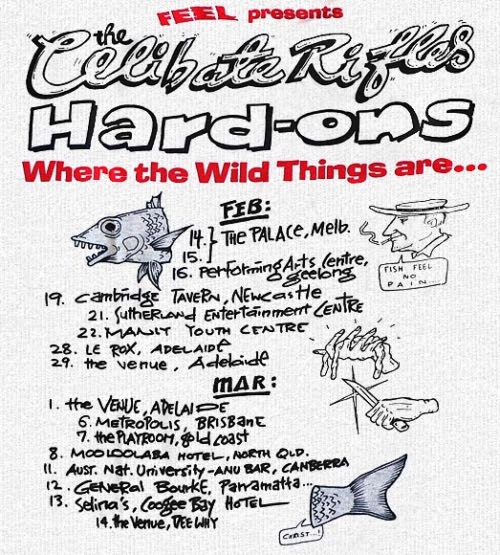 FEEL presents
the
Celibate Rifles
Hard-ons
Where the Wild Things are...
FEB:
14. } THE PALACE, Melb.
15.
16. Performing Arts Centre, Geelong
FISH FEEL
NO
PAIN
19. Cambridge TAVERN, NEWCASTLE
21. SUTHERLAND Entertainment CENTRE
22. MANLY YOUTH CENTRE
28. LE ROX, ADELAIDE
29. the venue, Adelaide
MAR:
1. the VENUE, ADELAIDE
6. METROPOLIS, BRISBANE
7. the PLAYROOM, gold coast
8. MOOLOOLABA HOTEL, NORTH QLD.
11. AUST. Nat. University-ANU BAR, CANBERRA
12. GENERAL BOURKE, Parramatta...
13. Selina's, Coogee Bay HOTEL
14. the Venue, DEE WHY
CHRIST...!